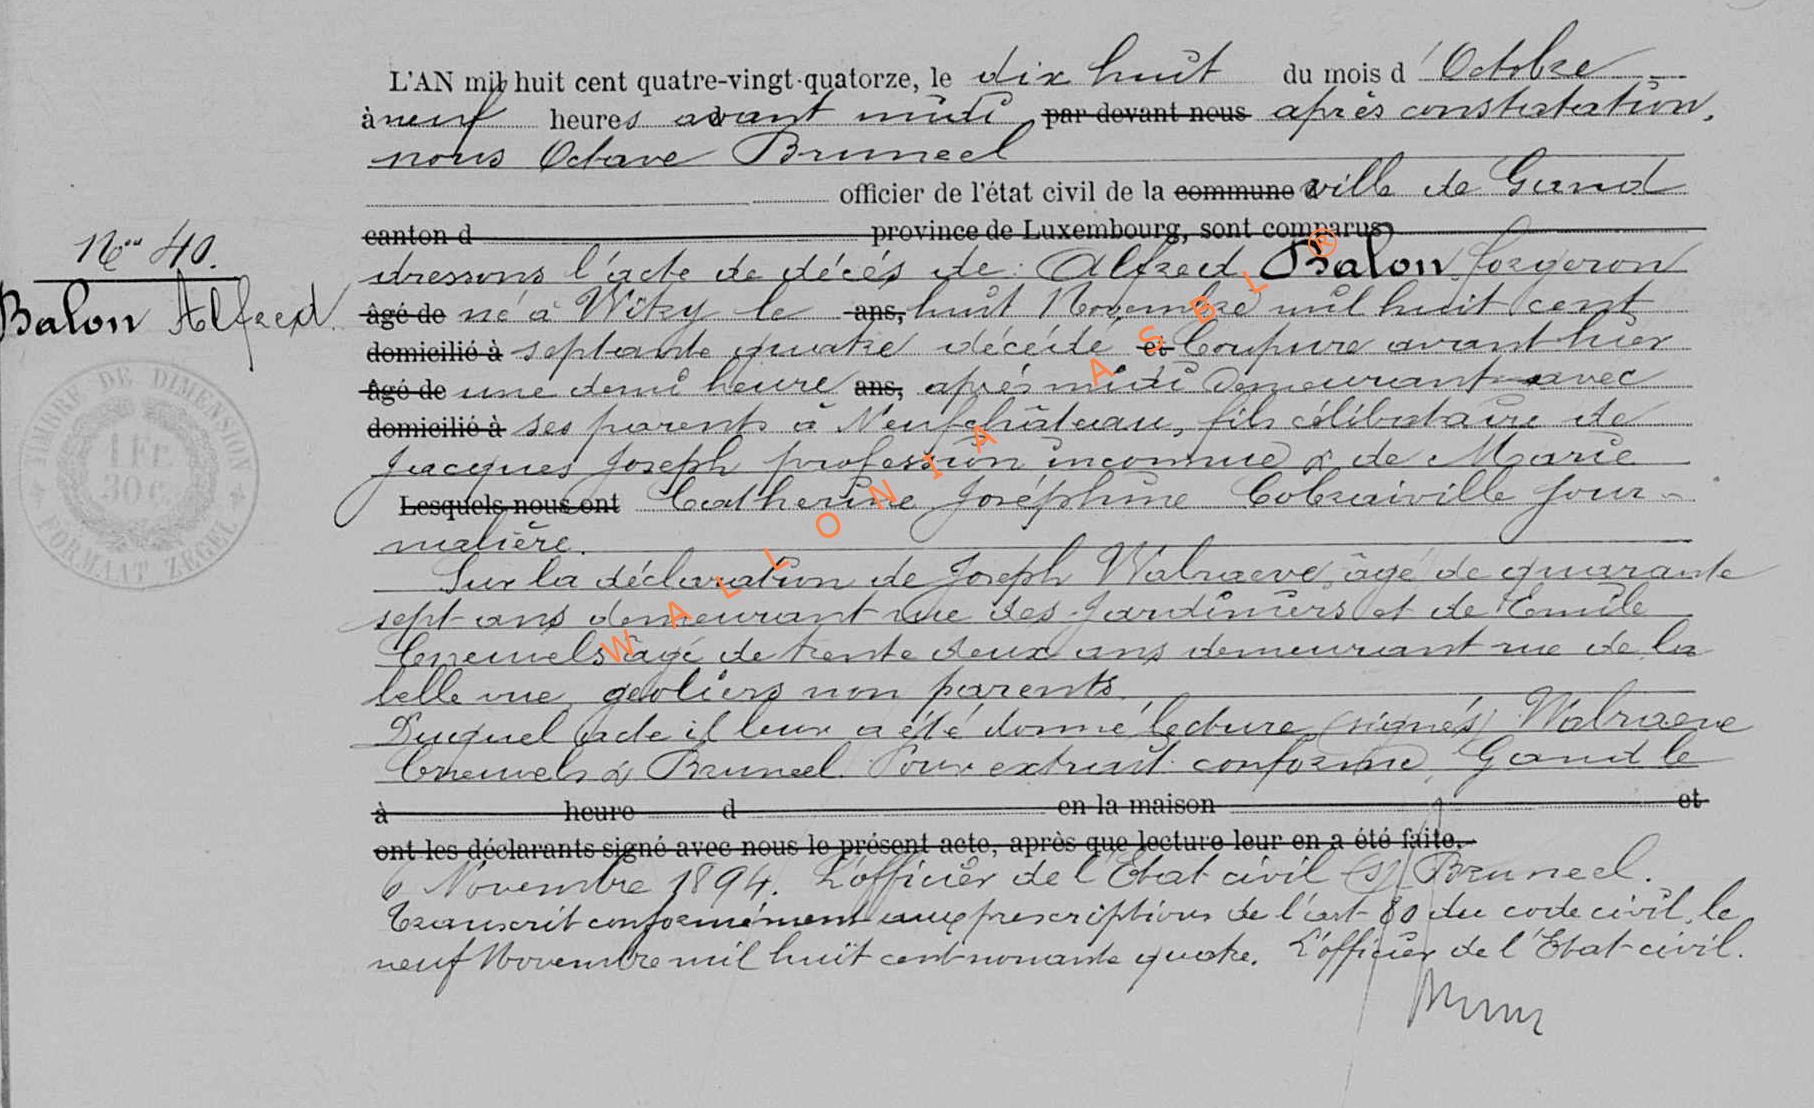 L'AN mil huit cent quatre-vingt-quatorze, le dix huit du mois d'Octobre
à neuf heures avant midi par devant nous après constatation,
nous Octave Bruneel
officier de l'état civil de la commune d ville de Gand
canton d province de Luxembourg, sont comparus
Nos 40.
dressons l'acte de décès de Alfred Balon forgeron
Balon Alfred.
âgé de né à Witry le ans, huit Novembre mil huit cent
domicilié à septante quatre décédé et Coupure avant hier
âgé de une demi heure ans, après midi demeurant avec
domicilié à ses parents à Neufchâteau, fils célibataire de
Jacques Joseph profession inconnue & de Marie
Lesquels nous ont Catherine Joséphine Cobraiville jour-
nalière.
Sur la déclaration de Joseph Walraeve âgé de quarante
sept ans demeurant rue des Jardiniers et de Emile
âgé de trente deux ans demeurant rue de la
belle vue, geoliers non parents.
Duquel acte il leur a été donné lecture (signés) Walraeve
& Bruneel. Pour extrait conforme, Gand le
à heure d en la maison et
ont les déclarants signé avec nous le présent acte, après que lecture leur en a été faite.
6 Novembre 1894. L'officier de l'Etat civil (s) Bruneel.
Transcrit conformément aux prescriptions de l'art 80 du code civil, le
neuf Novembre mil huit cent nonante quatre. L'officier de l'Etat civil.
TIMBRE DE DIMENSION
1 FR.
30 C.
FORMAAT ZEGEL
WALLONIA ASBL ®